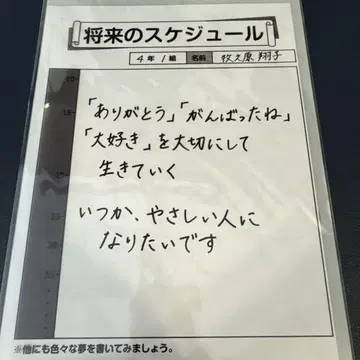 将来のスケジュール
4年1組 名前 牧之原翔子
「ありがとう」「がんばったね」
「大好き」を大切にして
生きていく
いつか、やさしい人に
なりたいです
※他にも色々な夢を書いてみましょう。